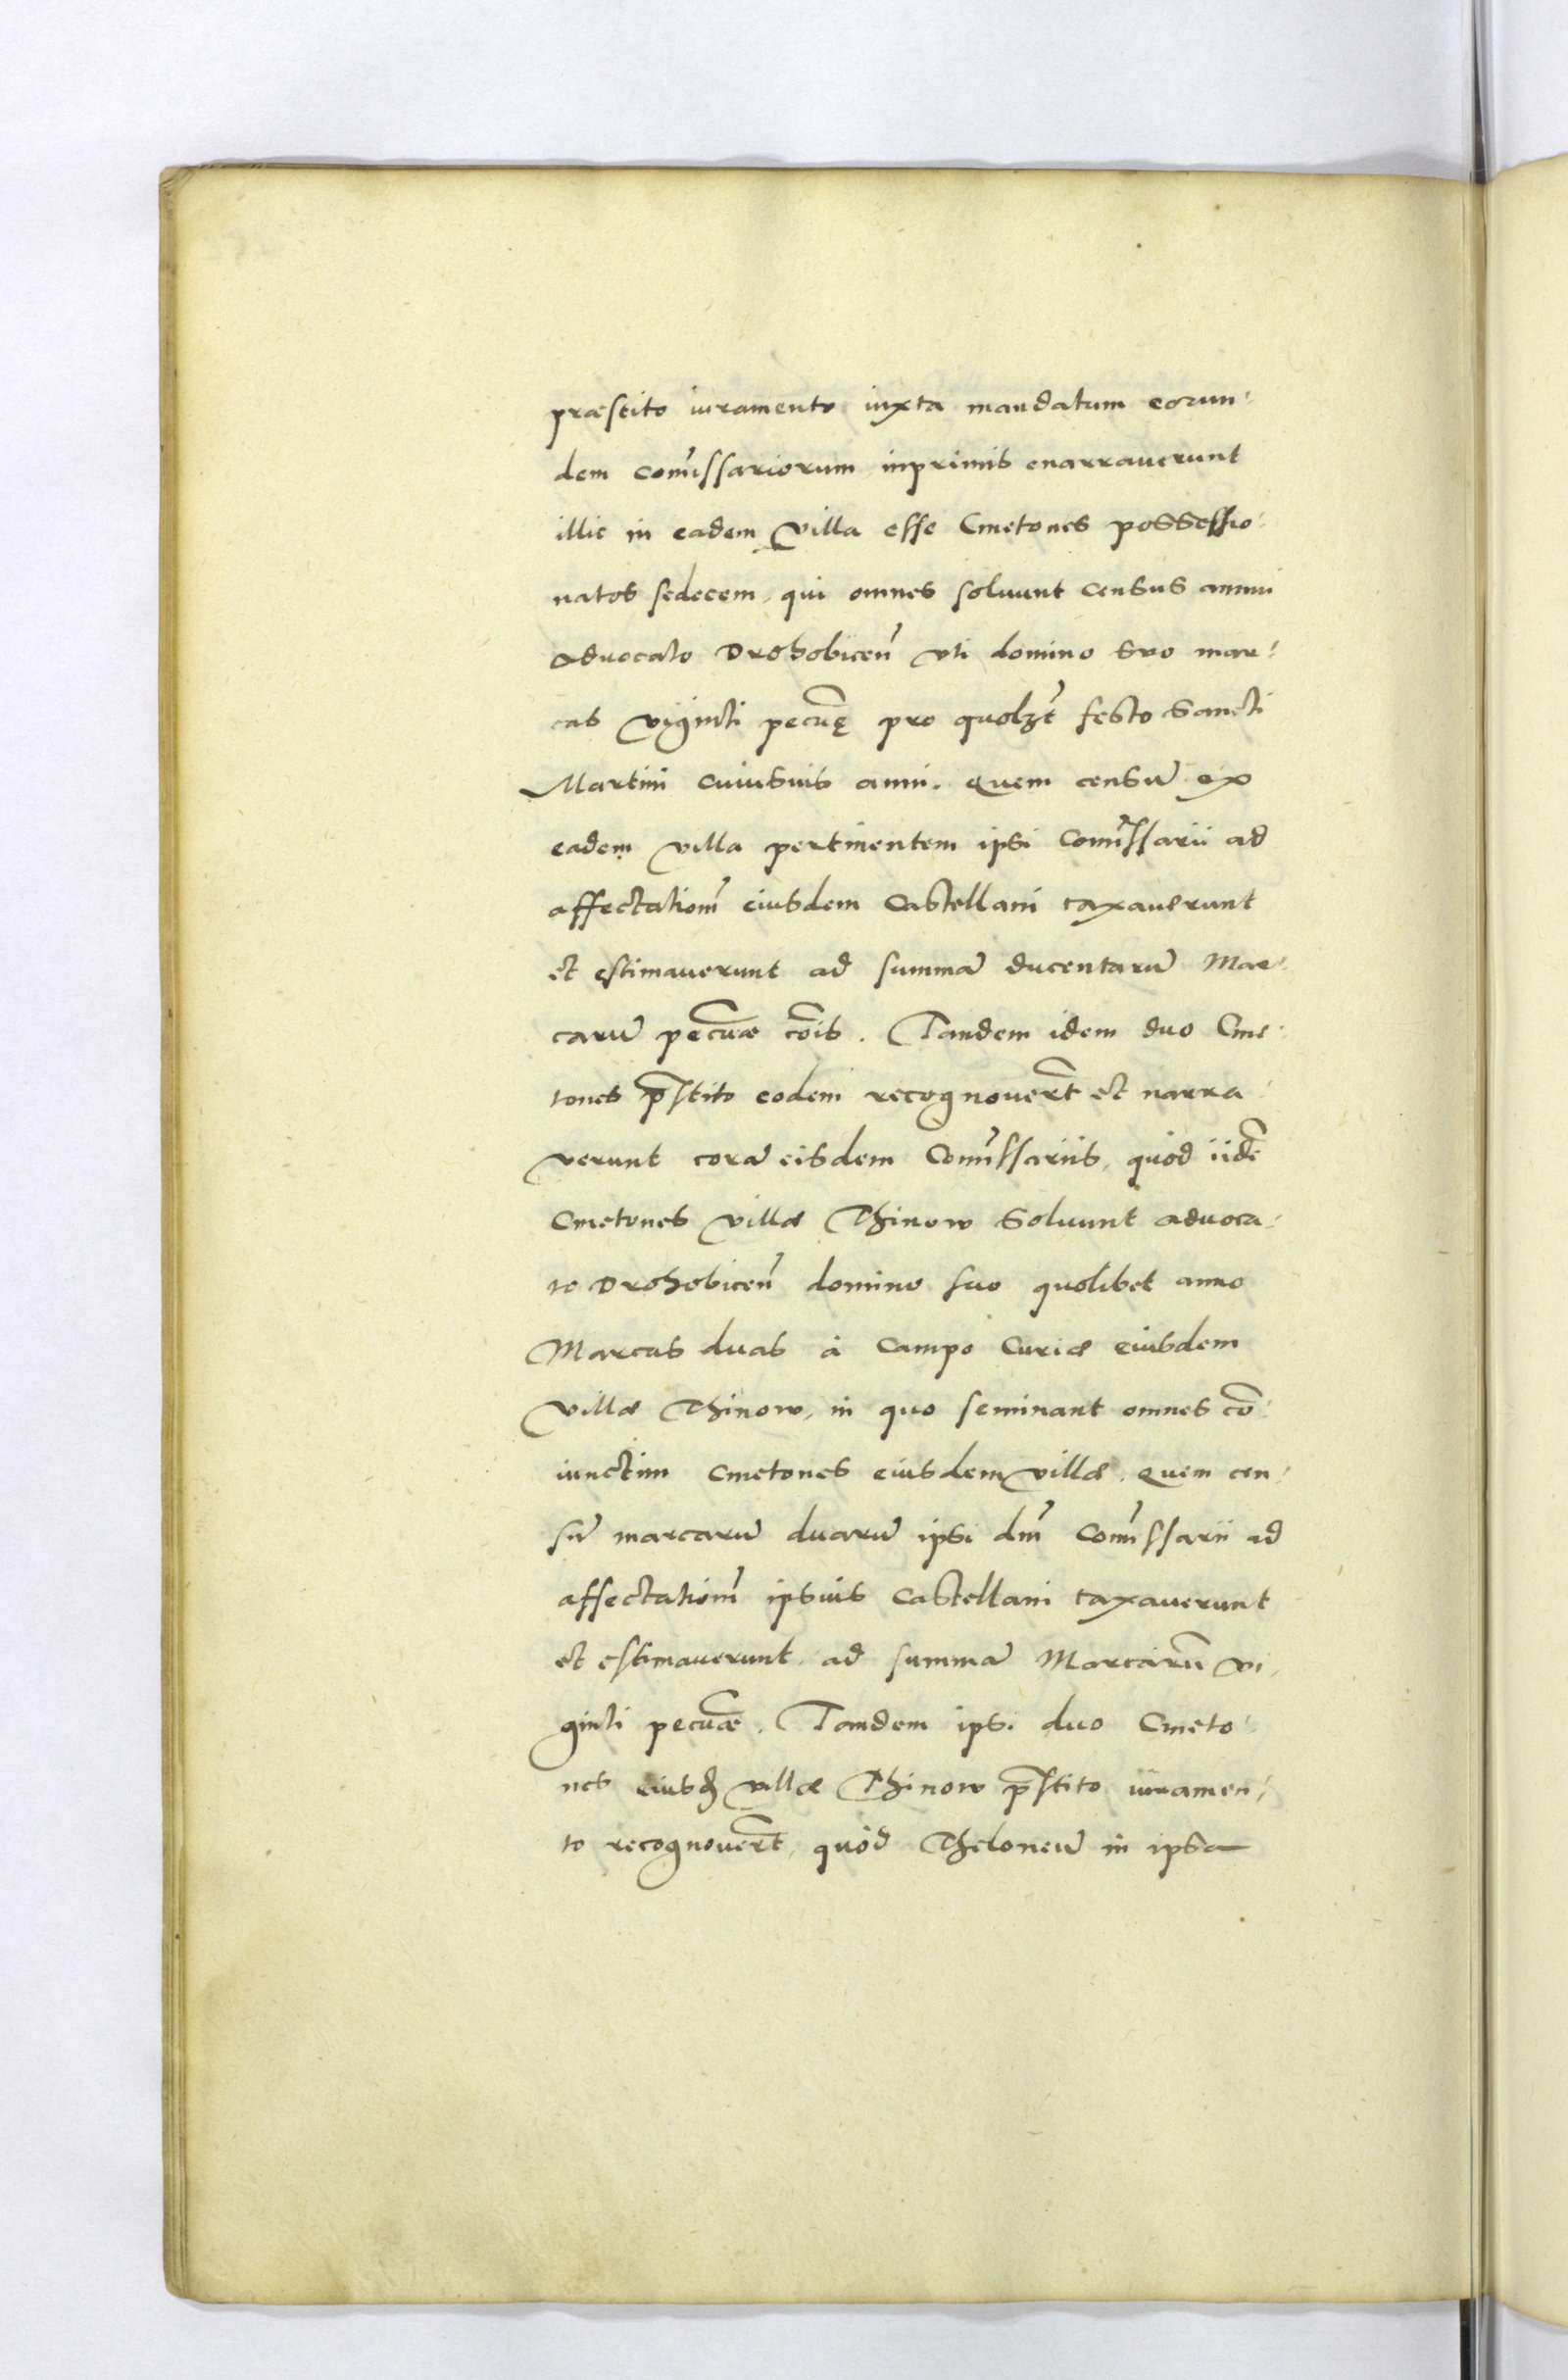 præstito iuramento iuxta mandatum eorun
dem Com̃issariorum inprimis enarraverunt
illic in eadem Villa esse Cmetones possessio
natos sedecem, qui omnes soluunt census annui
advocato Drohobiceñ vti domino suo mar
cas viginti pecũę pro quolȝt festo Sancti
Martini cuiusuis anni. Quem censũ ex
eadem villa pertinentem ipsi Com̃issarii ad
affectationm̃ eiusdem Castellani taxauerunt
et estimaverunt ad summã ducentarũ Mar
carũ pecũæ cõis. Tandem idem duo Cme
tones p̃stito eodem recognouerт̃ et narra
verunt corã eisdem Com̃issariis, quòd iidẽ
Cmetones villæ Thinow Soluunt advoca
to Drohobiceñ domino suo quolibet anno
Marcas duas à campo Curiæ eiusdem
Villæ Thinow, in quo seminant omnes cõ
iunctim Cmetones eiusdem villæ. Quem cen
sũ marcarũ duarũ ipsi dm̃ Com̃issarii ad
affectationm̃ ipsius Castellani taxaverunt
et estimaverunt ad summã Marcarũ vi
ginti pecũæ. Tandem ipsi duo Cmeto
nes eiusd villæ Thinow p̃stito iuramen
to recognouert̃, quòd Theloneũ in ipsa